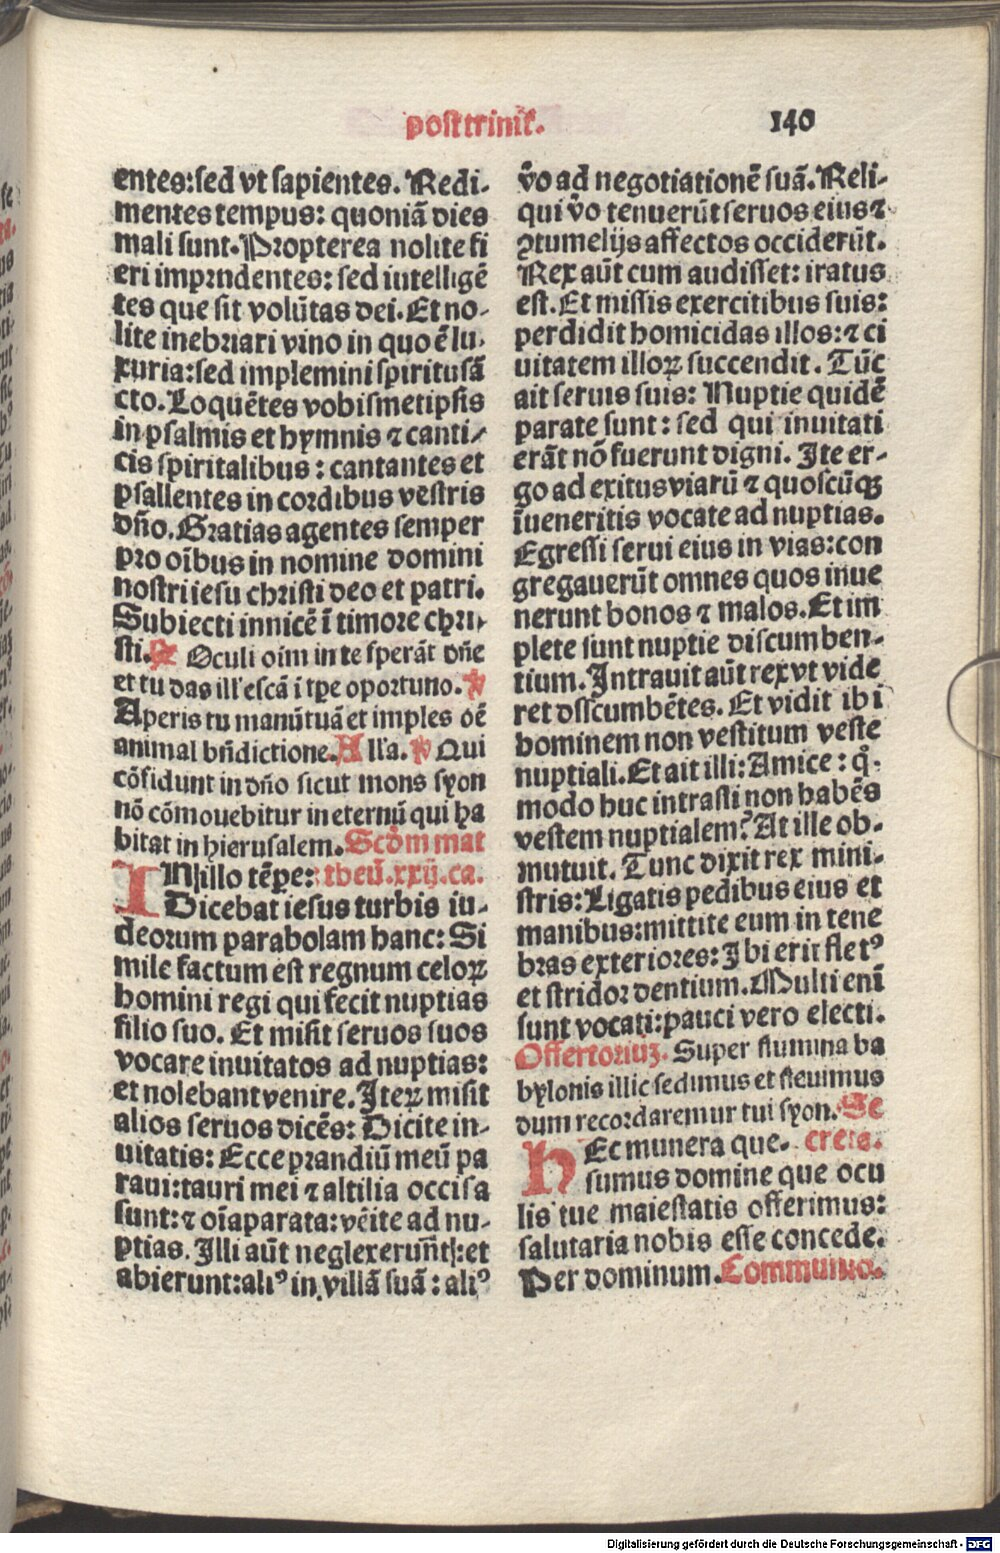 post trinit̄.
140
entes: sed vt sapientes. Redi-
mentes tempus: quoniā dies
mali sunt. Propterea nolite fi
eri imprndentes: sed intelligē
tes que sit volūtas dei. Et no-
lite inebriari vino in quo ē lu-
xuria: sed implemini spiritu sā
cto. Loquētes vobismetipsis
in psalmis et hymnis ⁊ canti-
cis spiritalibus: cantantes et
psallentes in cordibus vestris
dn̄o. Gratias agentes semper
pro oībus in nomine domini
nostri iesu christi deo et patri.
Subiecti innicē ī timore chri-
sti. R̄ Oculi oīm in te sperāt dn̄e
et tu das ill' escā ī tp̄e oportuno. ℣
Aperis tu manū tuā et imples oē
animal bn̄dictione. All'a. ℣ Qui
cōfidunt in dn̄o sicut mons syon
nō cōmouebitur in eternū qui ha
bitat in hierusalem. Scd̄m mat
IN illo tēpe: theū. xxij. ca.
Dicebat iesus turbis iu-
deorum parabolam hanc: Si
mile factum est regnum celoꝝ
homini regi qui fecit nuptias
filio suo. Et misit seruos suos
vocare inuitatos ad nuptias:
et nolebant venire. Iteꝝ misit
alios seruos dicēs: Dicite in-
uitatis: Ecce prandiū meū pa
raui: tauri mei ⁊ altilia occisa
sunt: ⁊ oīa parata: vēite ad nu-
ptias. Illi aūt neglexerun̄t: et
abierunt: aliꝰ in villā suā: aliꝰ
v̄o ad negotiationē suā. Reli-
qui v̄o tenuerūt seruos eius ⁊
ꝯtumelijs affectos occiderūt.
Rex aūt cum audisset: iratus
est. Et missis exercitibus suis:
perdidit homicidas illos: ⁊ ci
uitatem illoꝝ succendit. Tūc
ait seruis suis: Nuptie quidē
parate sunt: sed qui inuitati
erāt nō fuerunt digni. Ite er-
go ad exitus viarū ⁊ quoscūqꝫ
īueneritis vocate ad nuptias.
Egressi serui eius in vias: con
gregauerūt omnes quos inue
nerunt bonos ⁊ malos. Et im
plete sunt nuptie discumben-
tium. Intrauit aūt rex vt vide
ret dsscumbētes. Et vidit ibi
hominem non vestitum veste
nuptiali. Et ait illi: Amice: q̊-
modo huc intrasti non habēs
vestem nuptialem? At ille ob-
mutuit. Tunc dixit rex mini-
stris: Ligatis pedibus eius et
manibus: mittite eum in tene
bras exteriores: Ibi erit fletꝰ
et stridor dentium. Multi enī
sunt vocati: pauci vero electi.
Offertoriuꝫ. Super flumina ba
bylonis illic sedimus et fleuimus
dum recordaremur tui syon. Se
HEc munera que- creta.
sumus domine que ocu
lis tue maiestatis offerimus:
salutaria nobis esse concede.
Per dominum. Communio.
Digitalisierung gefördert durch die Deutsche Forschungsgemeinschaft - DFG